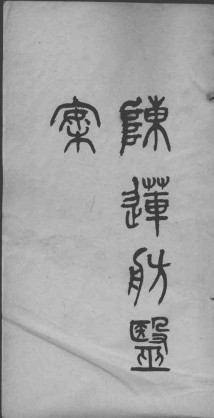 陳蓮舫醫
案